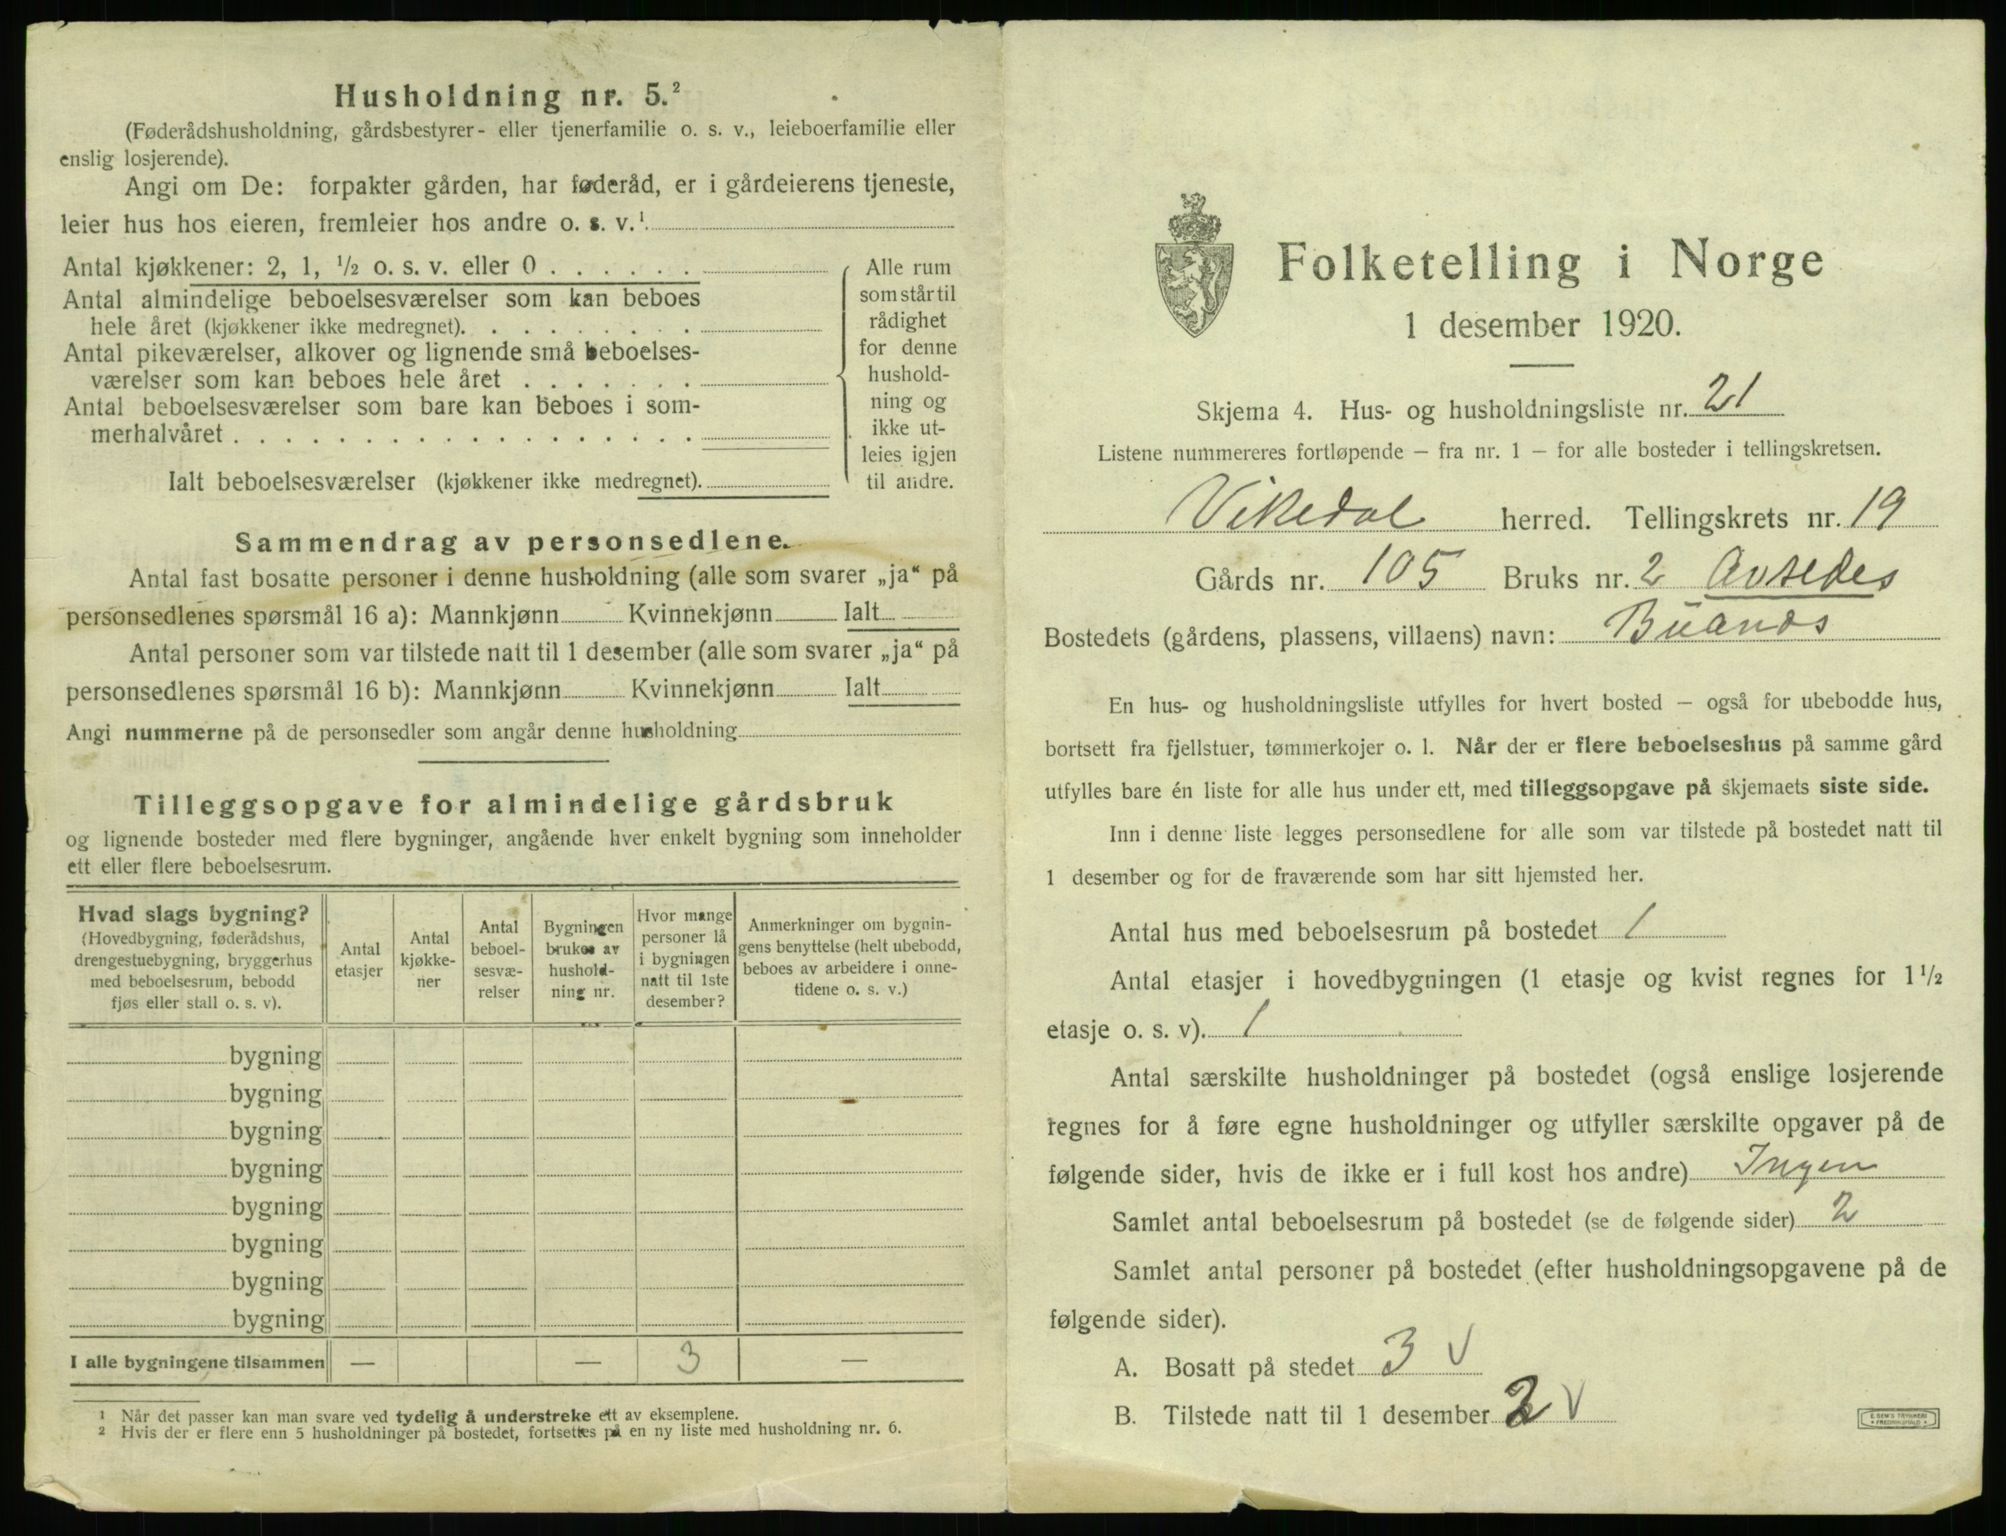 Husholdning nr. 5.²
(Føderådshusholdning, gårdsbestyrer- eller tjenerfamilie o. s. v., leieboerfamilie eller
enslig losjerende).
Angi om De: forpakter gården, har føderåd, er i gårdeierens tjeneste,
leier hus hos eieren, fremleier hos andre o. s. v.¹
Antal kjøkkener: 2, 1, ½ o. s. v. eller 0 . . . . . .
Antal almindelige beboelsesværelser som kan beboes
hele året (kjøkkener ikke medregnet). . . . . . . . .
Antal pikeværelser, alkover og lignende små beboelses-
værelser som kan beboes hele året . . . . . . .
Antal beboelsesværelser som bare kan beboes i som-
merhalvåret . . . . . . . . . . . . . . . . . .
Ialt beboelsesværelser (kjøkkener ikke medregnet).
Alle rum
som står til
rådighet
for denne
hushold-
ning og
ikke ut-
leies igjen
til andre.
Sammendrag av personsedlene.
Antal fast bosatte personer i denne husholdning (alle som svarer „ja“ på
personsedlenes spørsmål 16 a): Mannkjønn Kvinnekjønn Ialt
Antal personer som var tilstede natt til 1 desember (alle som svarer „ja“ på
personsedlenes spørsmål 16 b): Mannkjønn Kvinnekjønn Ialt
Angi nummerne på de personsedler som angår denne husholdning
Tilleggsopgave for almindelige gårdsbruk
og lignende bosteder med flere bygninger, angående hver enkelt bygning som inneholder
ett eller flere beboelsesrum.
Hvad slags bygning?
(Hovedbygning, føderådshus,
drengestuebygning, bryggerhus
med beboelsesrum, bebodd
fjøs eller stall o. s. v).
Antal
etasjer
Antal
kjøkke-
ner
Antal
beboel-
sesvæ-
relser
Bygningen
brukes av
hushold-
ning nr.
Hvor mange
personer lå
i bygningen
natt til 1ste
desember?
Anmerkninger om bygnin-
gens benyttelse (helt ubebodd,
beboes av arbeidere i onne-
tidene o. s. v.)
bygning
bygning
bygning
bygning
bygning
bygning
bygning
bygning
I alle bygningene tilsammen — — 3 —
¹ Når det passer kan man svare ved tydelig å understreke ett av eksemplene.
² Hvis der er flere enn 5 husholdninger på bostedet, fortsettes på en ny liste med husholdning nr. 6.
Folketelling i Norge
1 desember 1920.
Skjema 4. Hus- og husholdningsliste nr. 21
Listene nummereres fortløpende — fra nr. 1 — for alle bosteder i tellingskretsen.
Vikedal herred. Tellingskrets nr. 19
Gårds nr. 105 Bruks nr. 2 Avsedes
Bostedets (gårdens, plassens, villaens) navn: Buanos
En hus- og husholdningsliste utfylles for hvert bosted — også for ubebodde hus,
bortsett fra fjellstuer, tømmerkojer o. l. Når der er flere beboelseshus på samme gård
utfylles bare én liste for alle hus under ett, med tilleggsopgave på skjemaets siste side.
Inn i denne liste legges personsedlene for alle som var tilstede på bostedet natt til
1 desember og for de fraværende som har sitt hjemsted her.
Antal hus med beboelsesrum på bostedet 1
Antal etasjer i hovedbygningen (1 etasje og kvist regnes for 1½
etasje o. s. v). 1
Antal særskilte husholdninger på bostedet (også enslige losjerende
regnes for å føre egne husholdninger og utfyller særskilte opgaver på de
følgende sider, hvis de ikke er i full kost hos andre) Ingen
Samlet antal beboelsesrum på bostedet (se de følgende sider) 2
Samlet antal personer på bostedet (efter husholdningsopgavene på de
følgende sider).
A. Bosatt på stedet 3 v
B. Tilstede natt til 1 desember 2 v
E. SEM'S TRYKKERI
FREDRIKSHALD